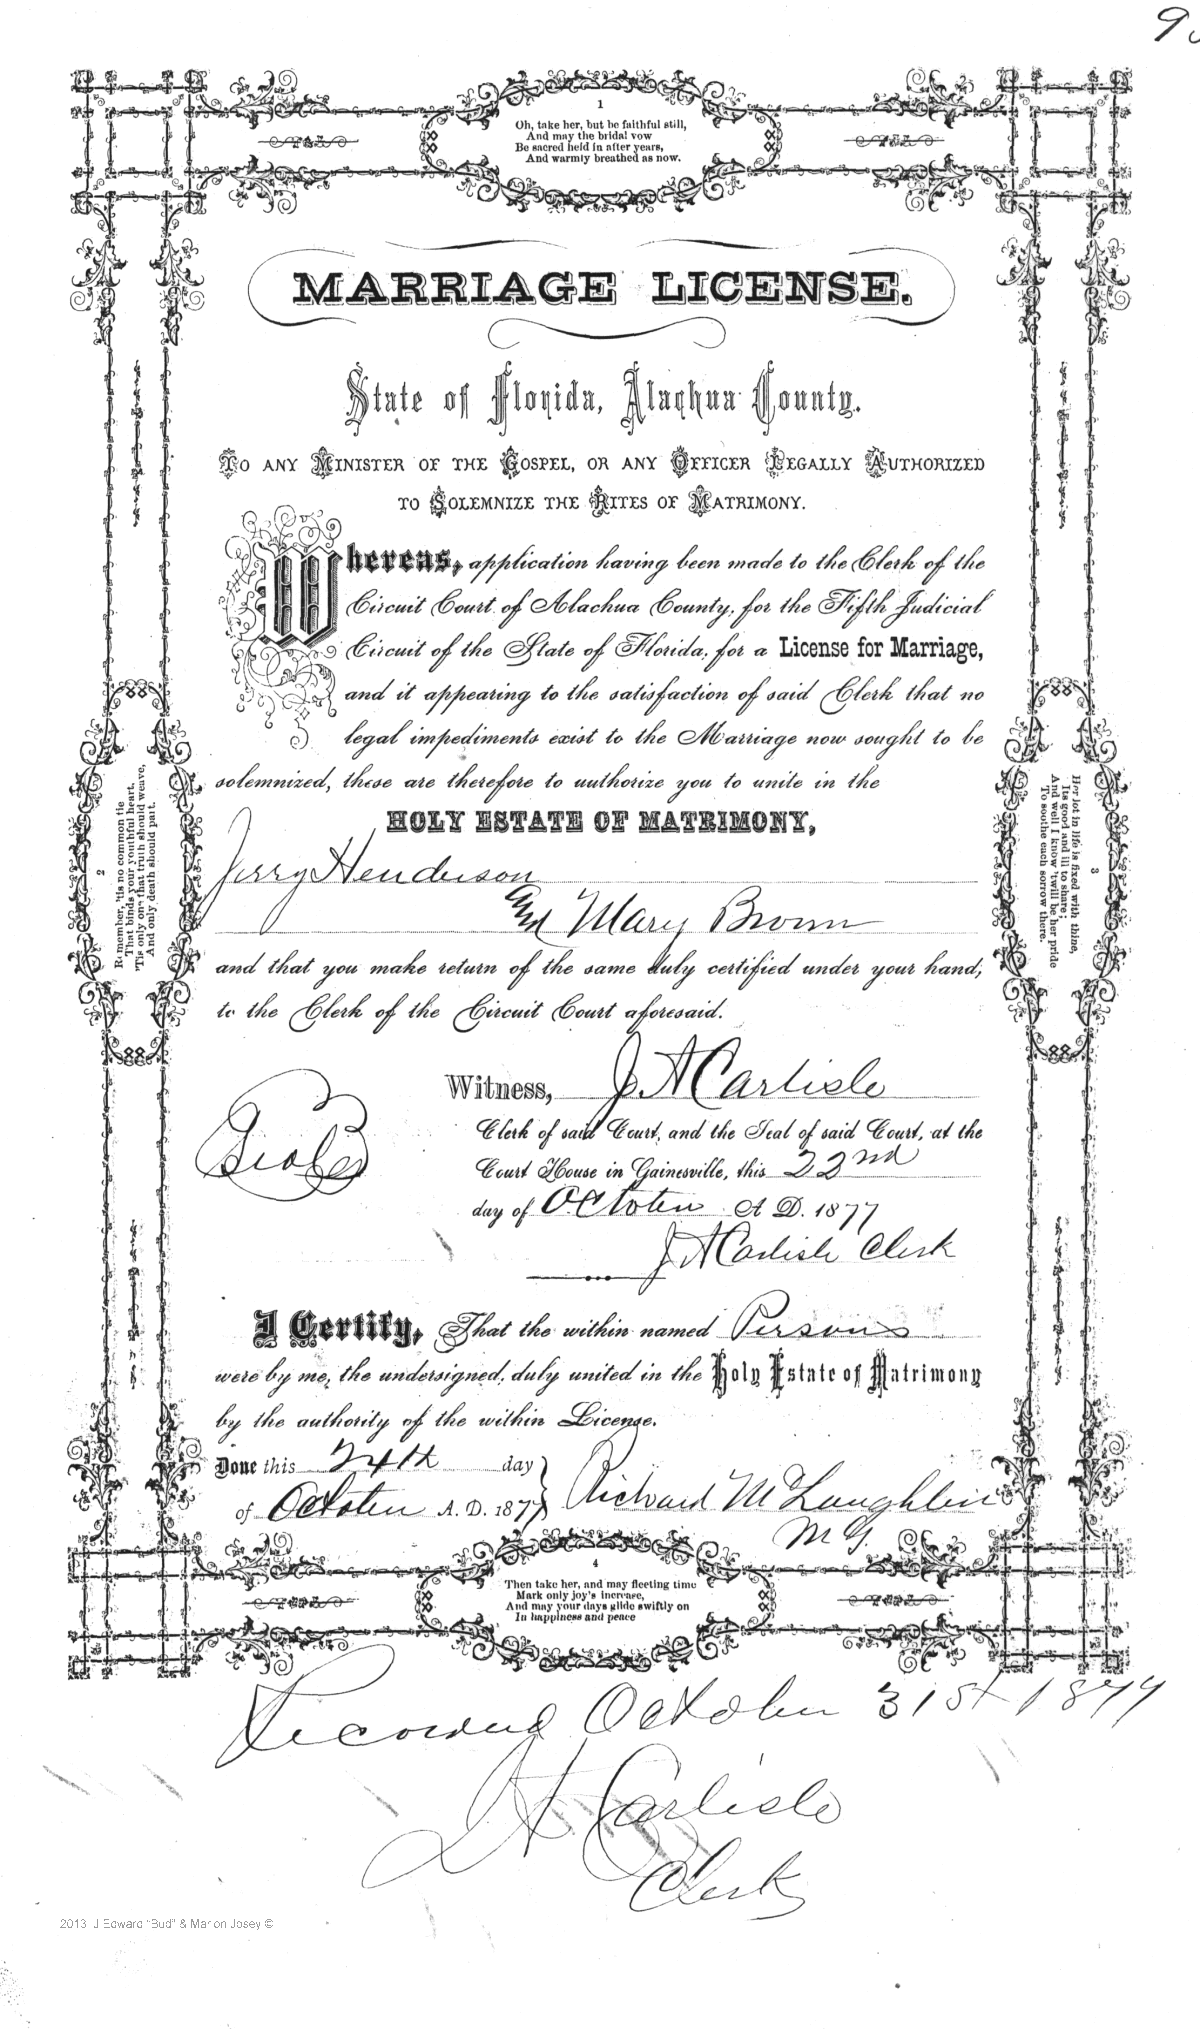 1
Oh, take her, but be faithful still,
And may the bridal vow
Be sacred held in after years,
And warmly breathed as now.
MARRIAGE LICENSE.
State of Florida, Alachua County.
TO ANY MINISTER OF THE GOSPEL, OR ANY OFFICER LEGALLY AUTHORIZED
TO SOLEMNIZE THE RITES OF MATRIMONY.
Whereas, application having been made to the Clerk of the
Circuit Court of Alachua County, for the Fifth Judicial
Circuit of the State of Florida, for a License for Marriage,
and it appearing to the satisfaction of said Clerk that no
legal impediments exist to the Marriage now sought to be
solemnized, these are therefore to authorize you to unite in the
HOLY ESTATE OF MATRIMONY,
Jerry Henderson
And Mary Brown
and that you make return of the same duly certified under your hand,
to the Clerk of the Circuit Court aforesaid.
Witness, J A Carlisle
Clerk of said Court, and the Seal of said Court, at the
Court House in Gainesville, this 22nd
day of October A D. 1877
J A Carlisle Clerk
I Certify, That the within named Persons
were by me, the undersigned, duly united in the Holy Estate of Matrimony
by the authority of the within License.
Done this 24th day
of October A. D. 1877
Richard McLaughlin
M G.
2
Remember, 'tis no common tie
That binds your youthful heart,
'Tis only one that truth should weave,
And only death should part.
3
Her lot in life is fixed with thine,
Its good and ill to share;
And well I know 'twill be her pride
To soothe each sorrow there.
4
Then take her, and may fleeting time
Mark only joy's increase,
And may your days glide swiftly on
In happiness and peace
Recorded October 31st 1877
J A Carlisle
Clerk
2013 J Edward "Bud" & Marion Josey ©